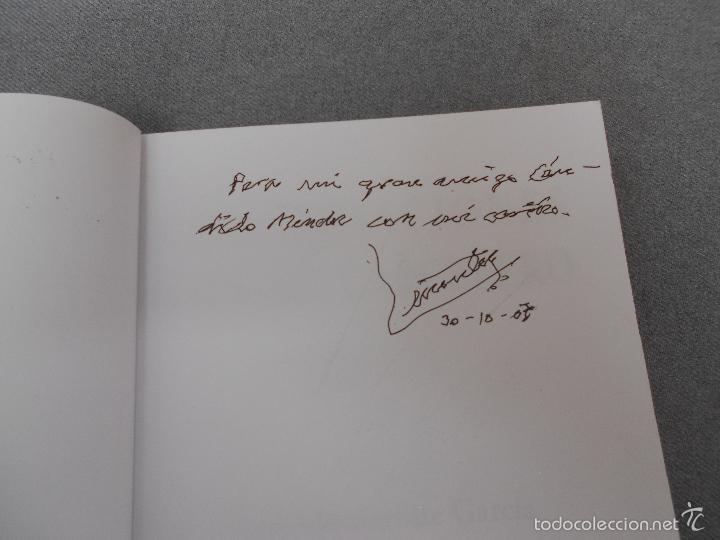 Para mi gran amigo Cán-
dido Méndez con mi
30-10-07
García
todocoleccion.net